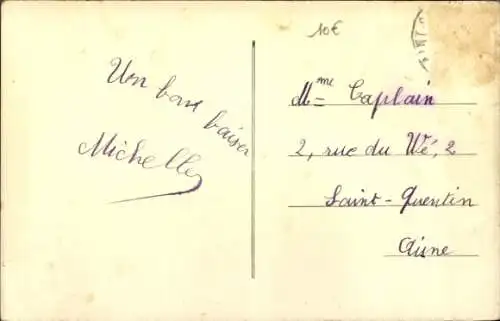 10€
Un bon baiser
Michelle
Mme Caplain
2, rue du Wé, 2
Saint-Quentin
Aisne